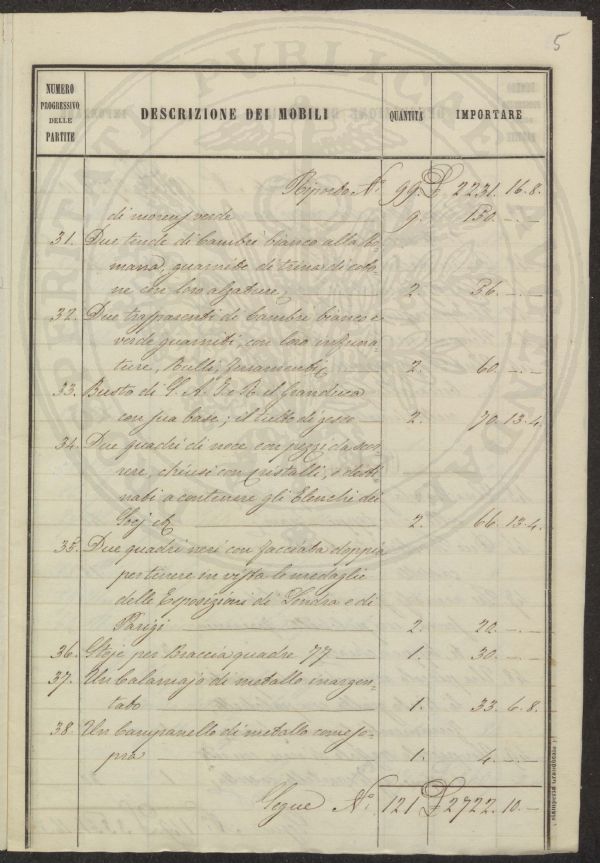 5
NUMERO PROGRESSIVO DELLE PARTITE DESCRIZIONE DEI MOBILI QUANTITA IMPORTARE
Riporto N.° 99. £ 2231. 16. 8.
di moreus verde 9. 150. — . —
31. Due tende di Cambri bianco alla Ro
mana, guarnite di trina di coto
ne con loro alzature, 2 36. — . —
32. Due trasparenti di Cambri bianco e
verde guarniti, con loro
ture, Rulli, ferramenti 2. 60. — . —
33. Busto di S. A. I. e R. il Granduca
con sua base; il tutto di gesso 2. 70. 13. 4.
34. Due quadri di noce con pezzi da scor
rere, chiusi con Cristalli, e desti
nati a contenere gli Elenchi dei
Socj 2. 66. 13. 4.
35. Due quadri neri con facciata doppia
per tenere in vista le medaglie
delle Esposizioni di Londra e di
Parigi 2. 20. — . —
36. Stoje per Braccia quadre 77 1. 30. — . —
37. Un Calamajo di metallo inargen-
tato 1. 33. 6. 8.
38. Un Campanello di metallo come so-
pra 1. 4. — . —
Segue N.° 121 £ 2722. 10. —
Stamperia Granducale
PUBLICAE